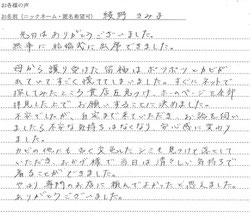 お客様の声
お名前（ニックネーム・匿名希望可）
先日はありがとうございました。
無事に結婚式に出席できました。
母から譲り受けた留袖はポツポツとカビが
れていてすごく慌ててしまいました。すぐにネットで
探してみたところ貴店を見つけ、ホームページを全部
拝見した上でお願いすることに決めました。
不安でしたが、自宅まで来ていただき、お話を伺い
ましたら不安な気持ちはなくなり、安心感に変わり
ました。
カビの他にも 変色したシミも見つけて落として
いただき、おかげ様で当日は清々しい気持ちで
着ることができました。
やはり専門のお店に頼んでよかったと思えました。
ありがとうございました。